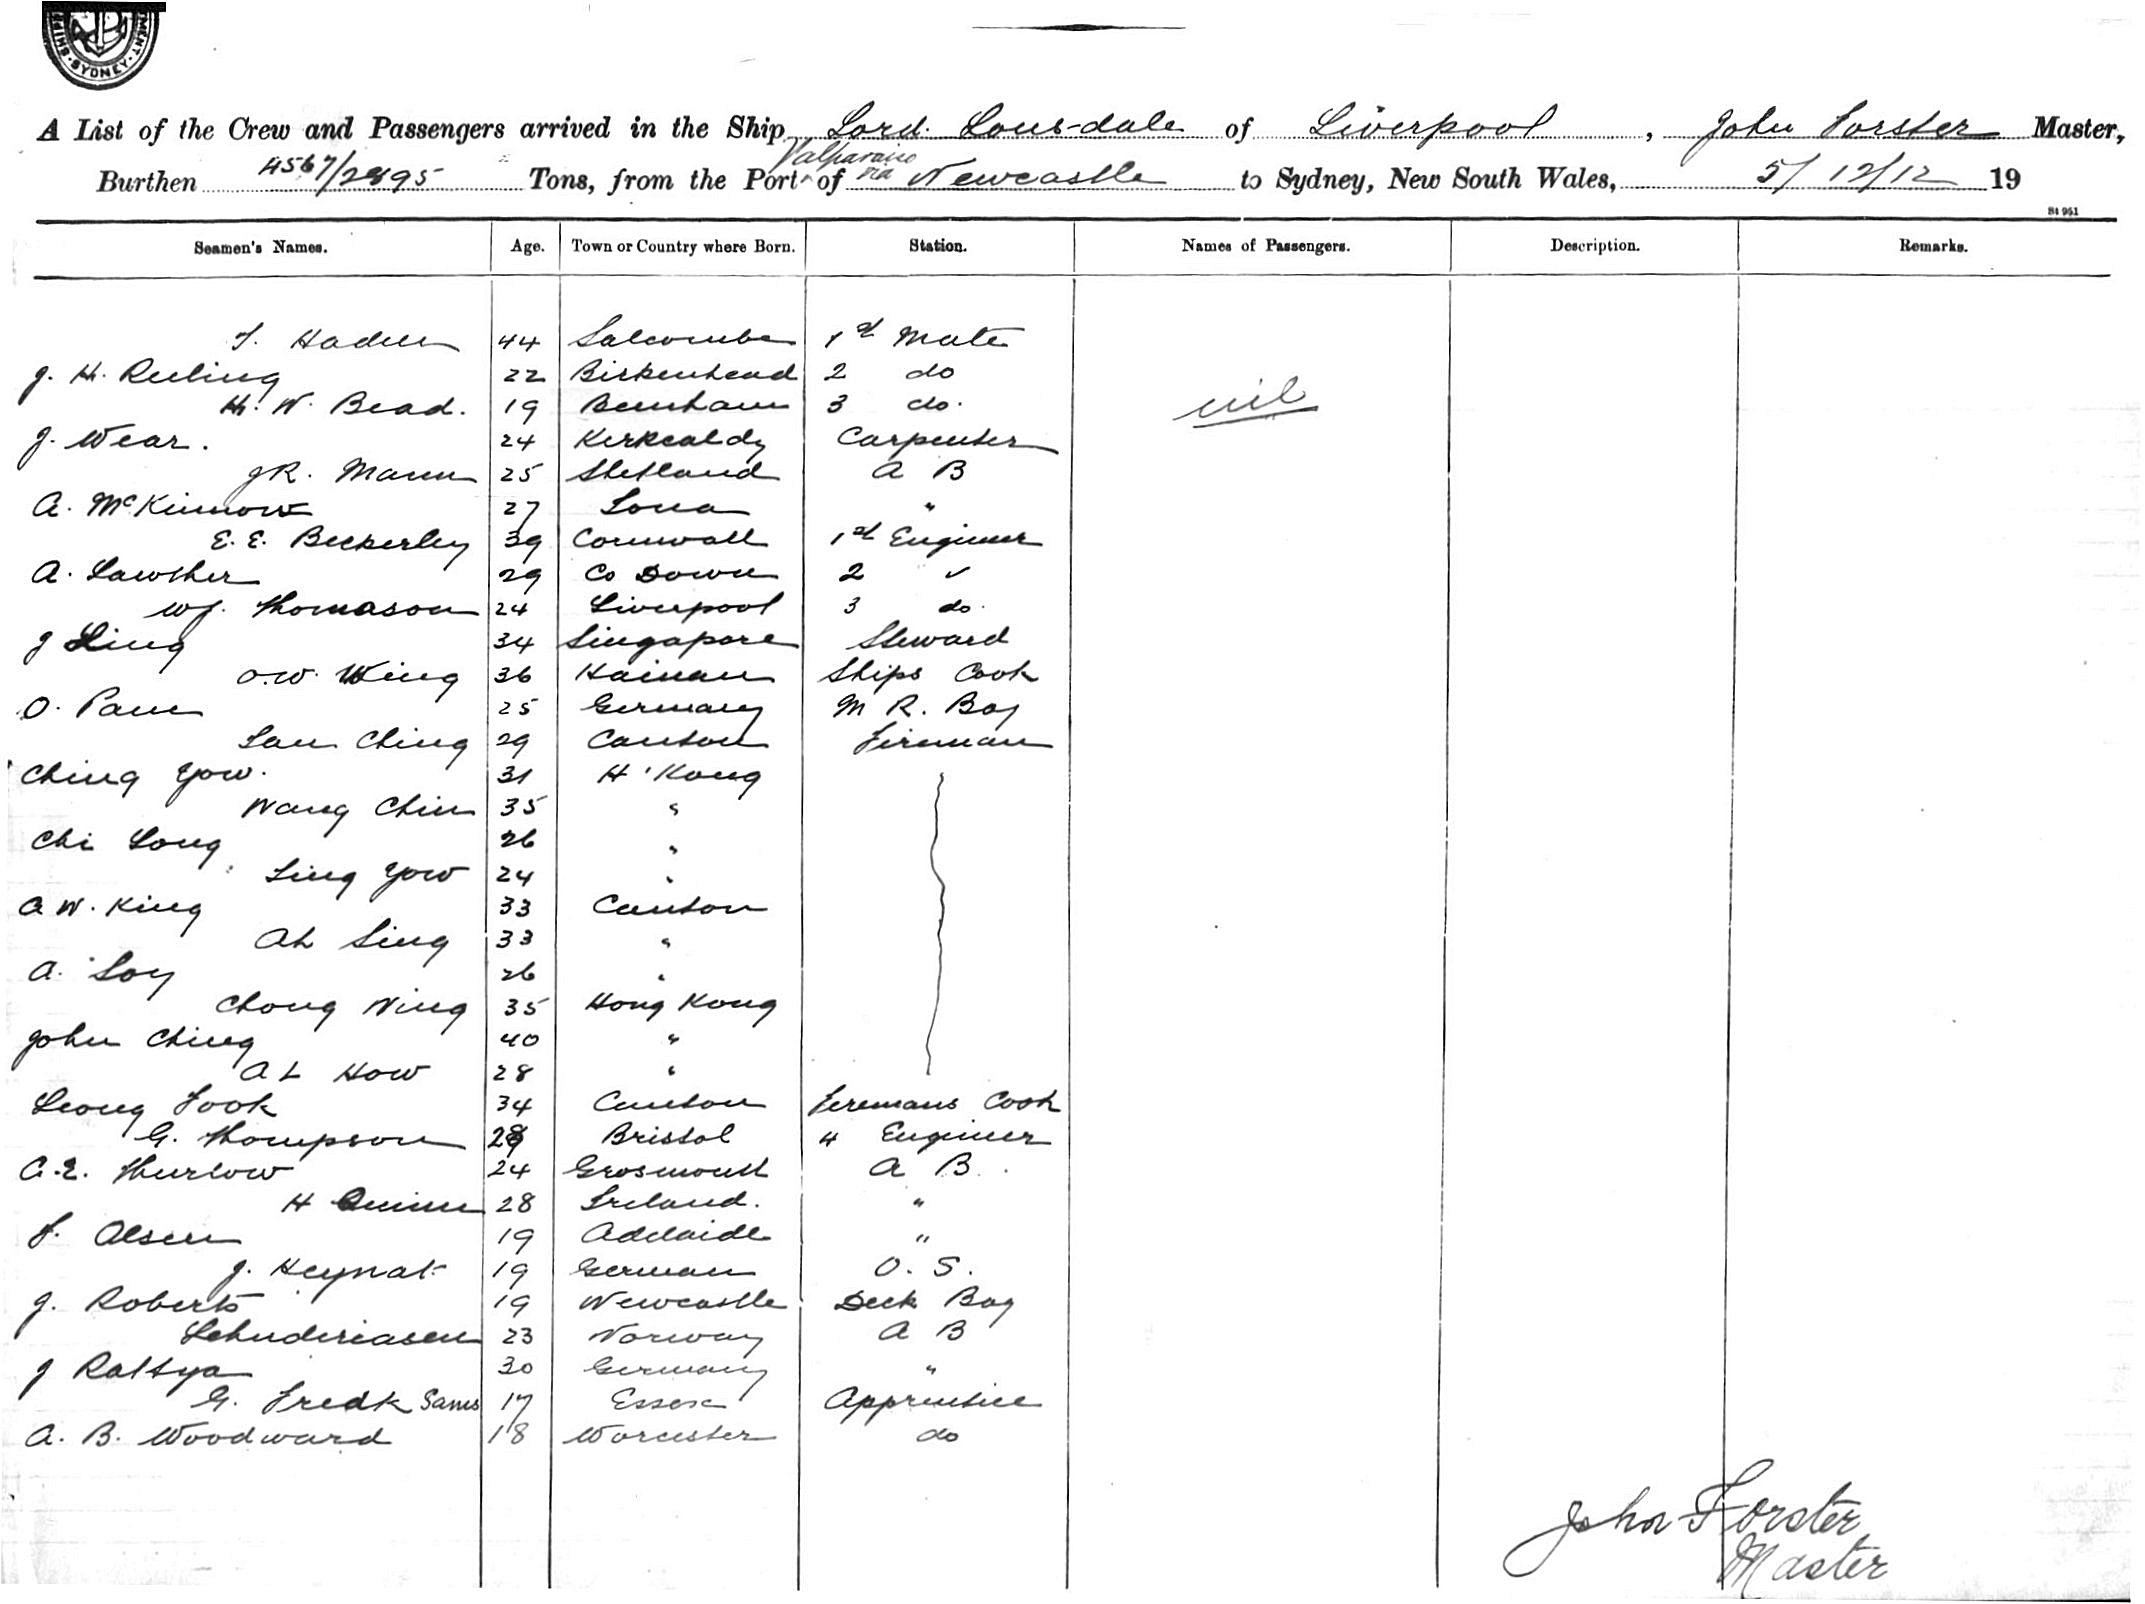 SHIPP MENT · SYDNEY ·
A List of the Crew and Passengers arrived in the Ship Lord Lonsdale of Liverpool, John Forster Master,
Burthen 4567/2895 Tons, from the Port of Valparaiso via Newcastle to Sydney, New South Wales, 5/12/12 19
St 951
Seamen's Names. Age. Town or Country where Born. Station. Names of Passengers. Description. Remarks.
44 Salcombe 1st Mate
J. H. Reeling 22 Birkenhead 2 do
H. W. Bead. 19 Benham 3 do. nil
J. Wear. 24 Kirkcaldy Carpenter
J R. Mann 25 Shetland A B
A. McKinnow 27 Iona "
E. E. Beckerley 39 Cornwall 1st Engineer
A. Lawther 29 Co Down 2 "
W J. Thomason 24 Liverpool 3 do.
J Ling 34 Singapore Steward
O. W. Wing 36 Hainan Ships Cook
O. Paul 25 Germany M R. Boy
Lau Ching 29 Canton Fireman
Ching Yow. 31 H'Kong
Wang Chin 35 "
Chi Long 26 "
Ling Yow 24 "
A W. King 33 Canton
Ah Sing 33 "
A. Loy 26 "
Chong Ning 35 Hong Kong
John Ching 40 "
Ah How 28 "
Leong Fook 34 Canton Firemans Cook
G. Thompson 28 Bristol 4 Engineer
A. E. Thurlow 24 Grosmouth A B.
H Quinn 28 Ireland. "
F. Olsen 19 Adelaide "
J. Heynat 19 German O. S.
J. Roberts 19 Newcastle Deck Boy
23 Norway A B
J Rattya 30 Germany "
G. Fredk Sams 17 Essex Apprentice
A. B. Woodward 18 Worcester do
John Forster
Master